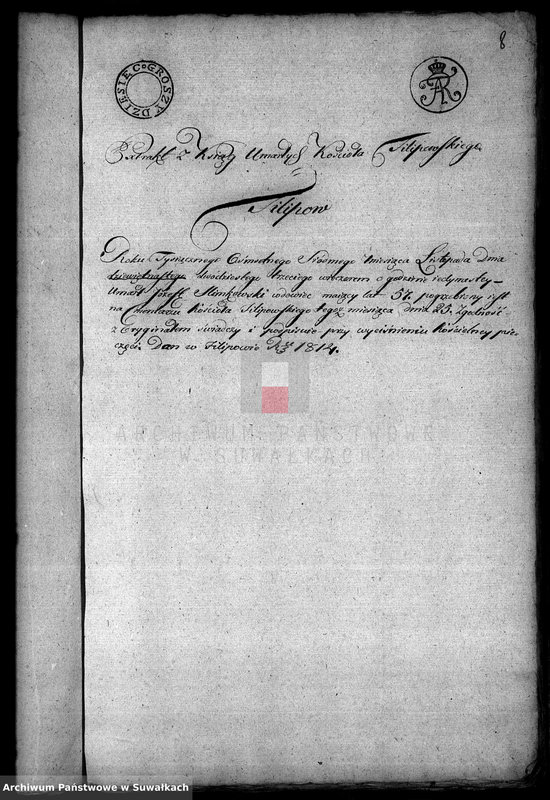 8
DZIESIĘC GROSZY
Extrakt z Ksiąg Umarłych Kościoła Filipowskiego
Filipow
Roku Tysiącznego Osmsetnego Siodmego miesiąca Listopada Dnia
dwudziestego trzeciego wieczorem o godzinie iedynastey
Umarł Jozeff Slimkowski wdowiec maiący lat 57. pogrzebiony iest
na Cmentarzu Kościoła Filipowskiego tegoż miesiąca dnia 25. Zgolność
z Oryginałem świadczy i podpisuie przy wyciśnieniu Kościelney pie-
częci. Dan w Filipowie 1814.
ARCHIWUM PAŃSTWOWE
W SUWAŁKACH
Archiwum Państwowe w Suwałkach